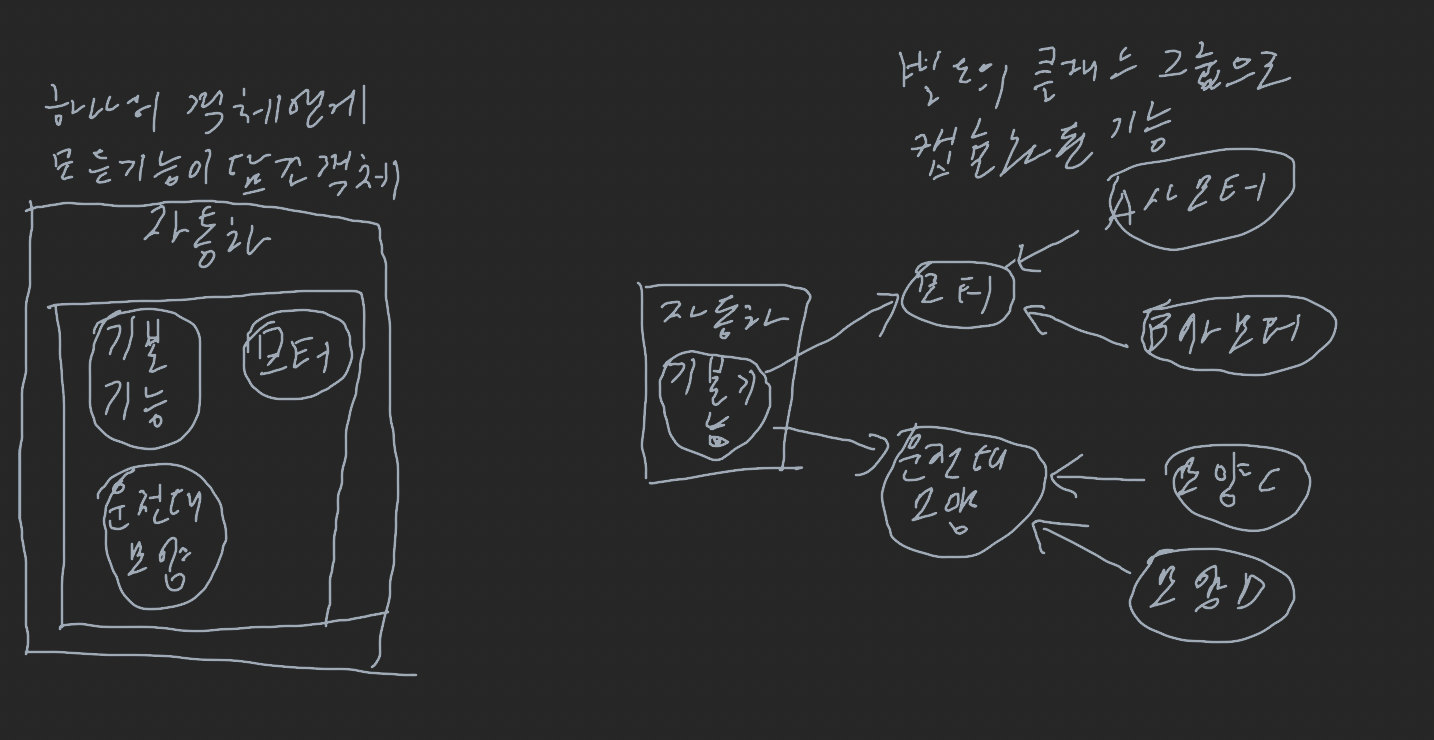 하나의 객체안에
모든기능이 담긴 객체
자동차
기본
기능
모터
운전대
모양
별도의 클래스 그룹으로
캡슐화된 기능
자동차
기본기
능
모터
A사모터
B사모터
운전대
모양
모양C
모양D